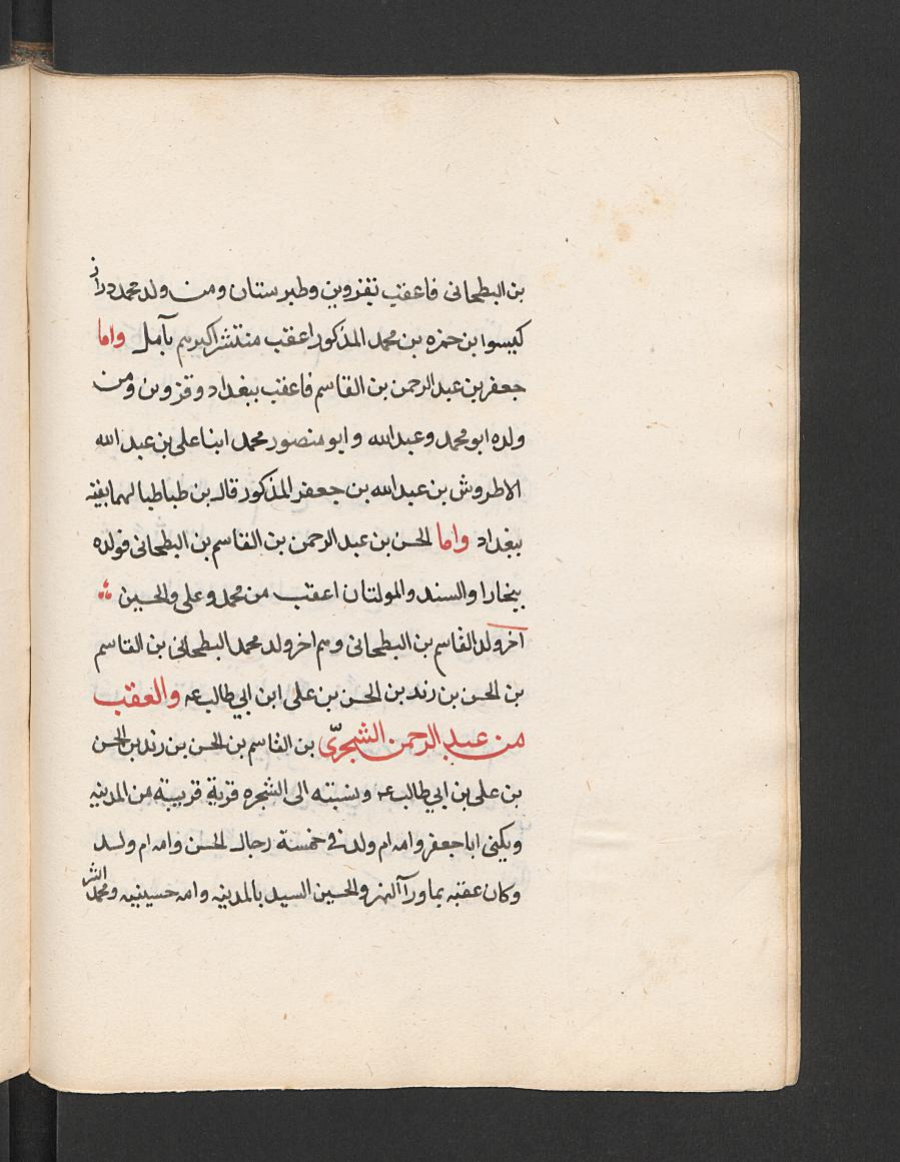 بن البطحانى فاعقب بقزوين وطبرستان ومن ولد محمد دراز
كيسوا بن حمزه بن محمد المذكور اعقب منتشر اكبرهم بآمل واما
جعفر بن عبد الرحمن بن القاسم فاعقب ببغداد وقزوين ومن
ولده ابو محمد وعبد الله وابو منصور محمد ابنا على بن عبد الله
الاطروش بن عبد الله بن جعفر المذكور قال بن طباطبا لهما بقيه
ببغداد واما الحسن بن عبد الرحمن بن القاسم بن البطحانى فولده
ببخارا والسند والمولتان اعقب من محمد وعلى والحسين
اخر ولد القاسم بن البطحانى وهم اخر ولد محمد البطحانى بن القاسم
بن الحسن بن زيد بن الحسن بن على ابن ابي طالب عه والعقب
من عبد الرحمن الشجرىّ بن القاسم بن الحسن بن زيد بن الحسن
بن على بن ابي طالب عه ونسبته الى الشجره قرية قريبة من المدينه
ويكنى ابا جعفر وامه ام ولد في خمسة رجال الحسن وامه ام ولد
وكان عقبه بما ورآ النهر والحسين السيد بالمدينه وامه حسينيه ومحمد